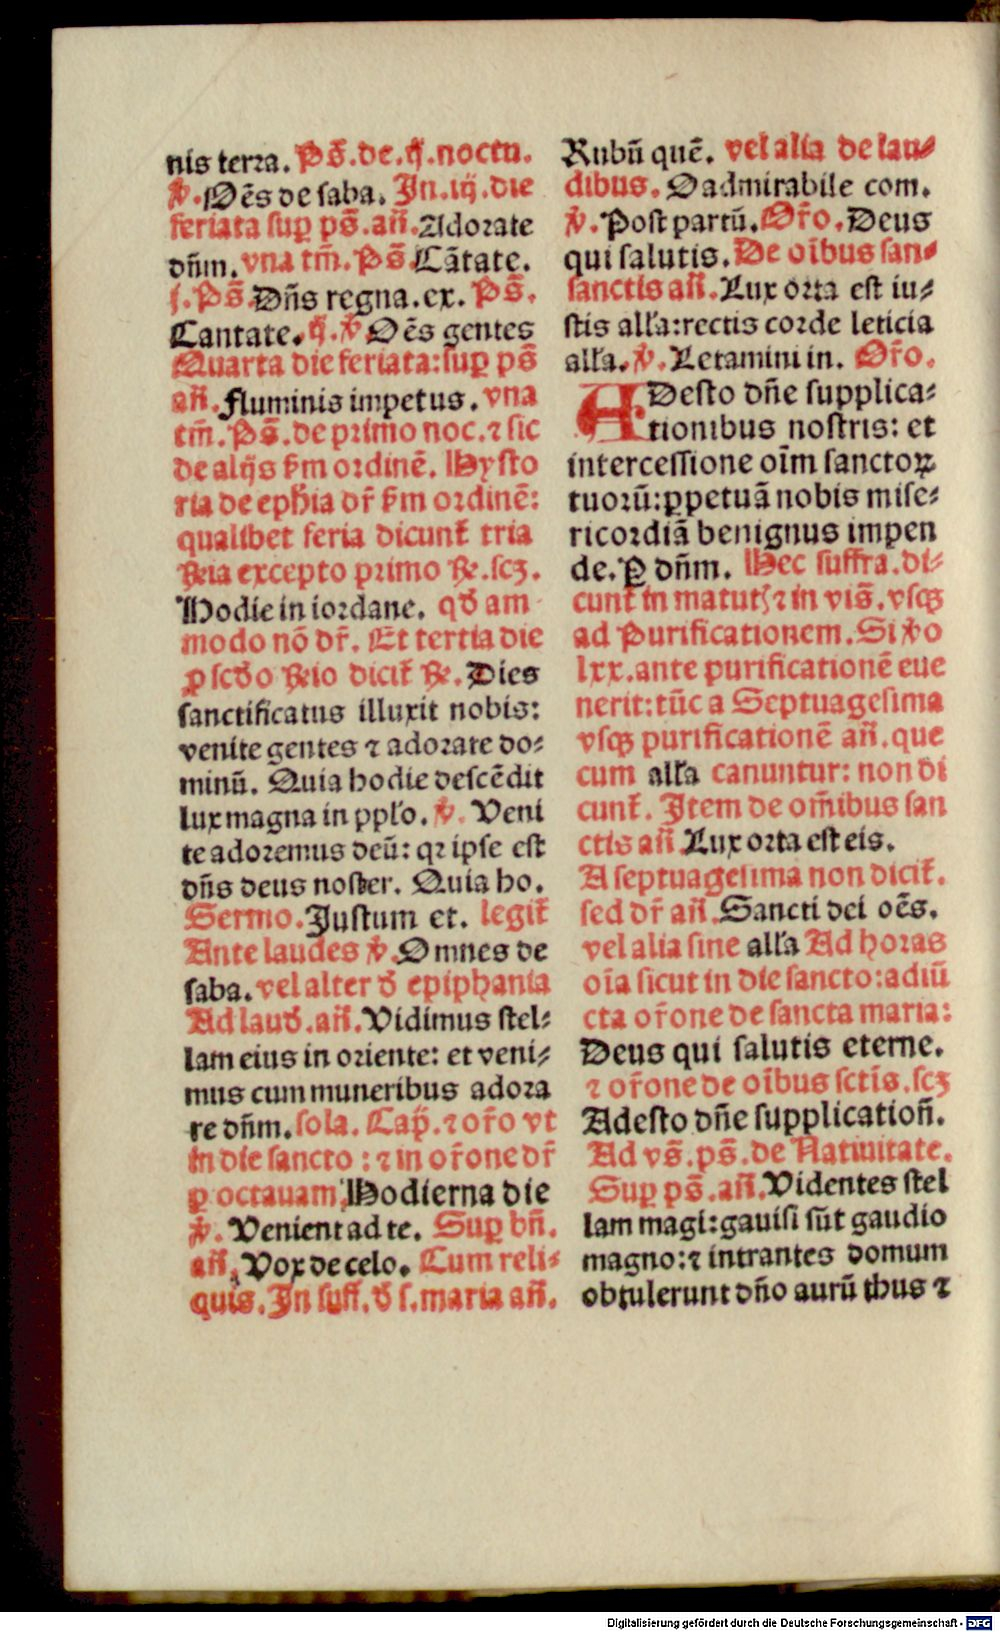 nis terra. Ps̄. de. ij. noctu.
℣. Oēs de saba. In. iij. die
feriata suꝑ ps̄. añ. Adorate
dñm. vna tm̄. Ps̄. Cātate.
j. Ps̄. Dñs regna. ex. Ps̄.
Cantate. ij. ℣. Oēs gentes
Quarta die feriata: suꝑ ps̄
añ. Fluminis impetus. vna
tm̄. Ps̄. de primo noc. ⁊ sic
de alijs ẜm ordinē. Hysto
ria de eph̄ia dr̄ ẜm ordinē:
qualibet feria dicunt᷑ tria
℟ia excepto primo ℟. scꝫ.
Hodie in iordane. qđ am
modo nō dr̄. Et tertia die
ꝓ scđo ℟io dicit᷑ ℟. Dies
sanctificatus illuxit nobis:
venite gentes ⁊ adorate do⸗
minū. Quia hodie descēdit
lux magna in ppl'o. ℣. Veni
te adoremus deū: qꝛ ipse est
dñs deus noster. Quia ho.
Sermo. Justum et. legit᷑
Ante laudes ℣. Omnes de
saba. vel alter đ epiphania
Ad lauđ. añ. Vidimus stel⸗
lam eius in oriente: et veni⸗
mus cum muneribus adora
re dñm. sola. Cap̄. ⁊ or̄o vt
in die sancto: ⁊ in or̄one dr̄
ꝑ octauam Hodierna die
℣. Venient ad te. Suꝑ bñ.
añ. Vox de celo. Cum reli⸗
quis. In suff. đ s. maria añ.
Rubū quē. vel alia de lau⸗
dibus. O admirabile com.
℣. Post partū. Or̄o. Deus
qui salutis. De oībus san⸗
sanctis añ. Lux orta est iu⸗
stis all'a: rectis corde leticia
all'a. ℣. Letamini in. Or̄o.
ADesto dñe supplica⸗
tionibus nostris: et
intercessione oīm sanctoꝝ
tuorū: ꝑpetuā nobis mise⸗
ricordiā benignus impen
de. P dñm. Hec suffra. di⸗
cunt᷑ in matut᷑ ⁊ in vis̄. vsqꝫ
ad Purificationem. Si ꝟo
lxx. ante purificationē eue
nerit: tūc a Septuagesima
vsqꝫ purificationē añ. que
cum all'a canuntur: non di
cunt᷑. Item de om̄ibus san
ctis añ Lux orta est eis.
A septuagesima non dicit᷑.
sed dr̄ añ. Sancti dei oēs.
vel alia sine all'a Ad horas
oīa sicut in die sancto: adiū
cta or̄one de sancta maria:
Deus qui salutis eterne.
⁊ or̄one de oībus sctīs. scꝫ
Adesto dñe supplicatioñ.
Ad vs̄. ps̄. de Natiuitate.
Suꝑ ps̄. añ. Videntes stel
lam magi: gauisi sūt gaudio
magno: ⁊ intrantes domum
obtulerunt dño aurū thus ⁊
Digitalisierung gefördert durch die Deutsche Forschungsgemeinschaft - DFG